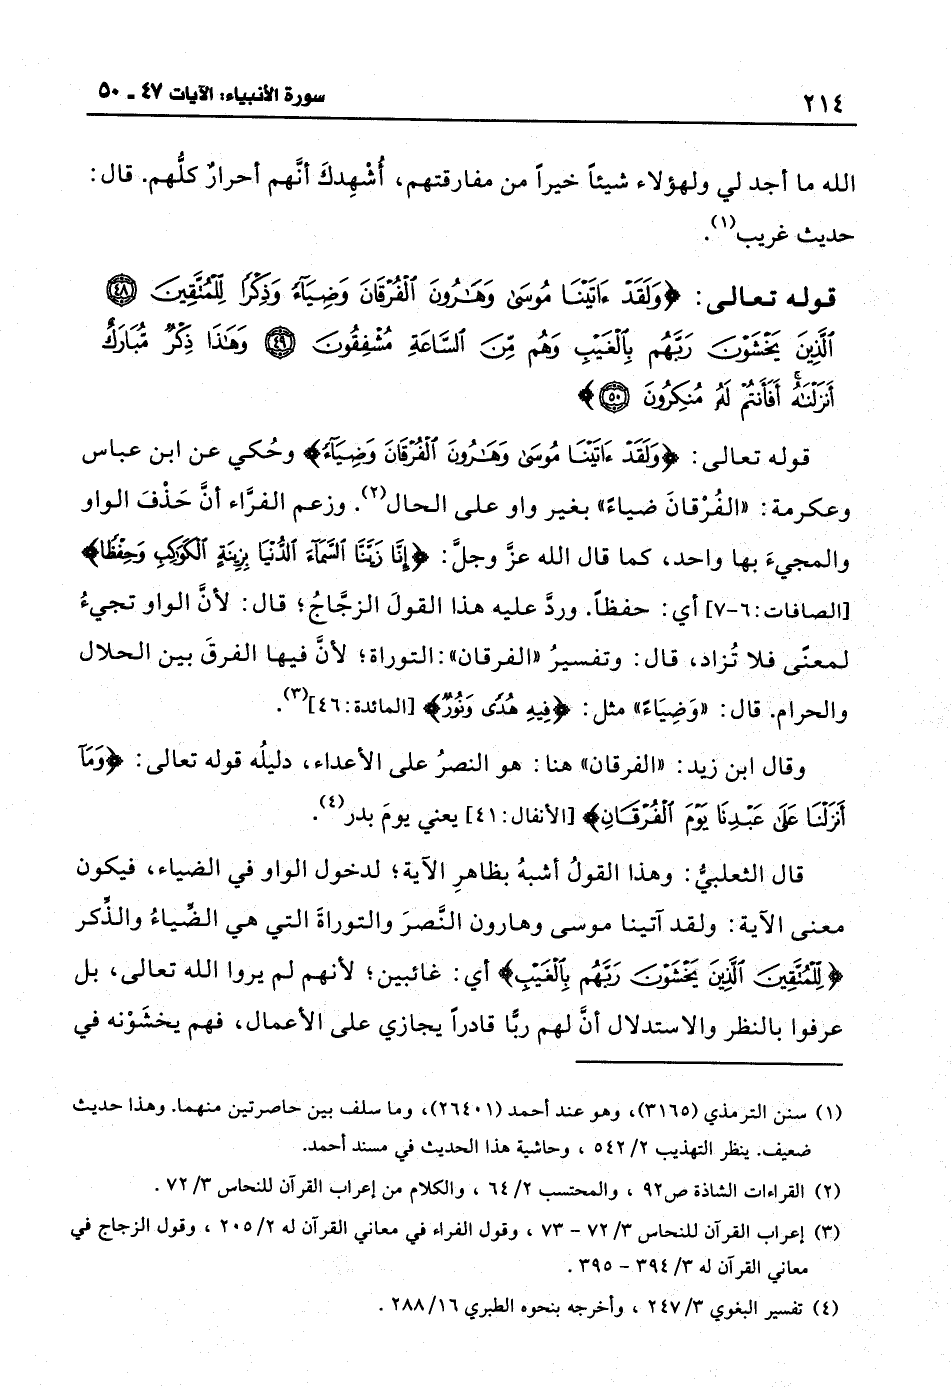 ٢١٤
سورة الأنبياء: الآيات ٤٧ ـ ٥٠
الله ما أجد لي ولهؤلاء شيئاً خيراً من مفارقتهم، أُشْهِدكَ أنَّهم أحرارٌ كلُّهم. قال:
حديث غريب(١).
قوله تعالى: ﴿وَلَقَدْ ءَاتَيْنَا مُوسَىٰ وَهَٰرُونَ ٱلْفُرْقَانَ وَضِيَآءً وَذِكْرًا لِّلْمُتَّقِينَ ٤٨
ٱلَّذِينَ يَخْشَوْنَ رَبَّهُم بِٱلْغَيْبِ وَهُم مِّنَ ٱلسَّاعَةِ مُشْفِقُونَ ٤٩ وَهَٰذَا ذِكْرٌ مُّبَارَكٌ
أَنزَلْنَٰهُ ۚ أَفَأَنتُمْ لَهُۥ مُنكِرُونَ ٥٠﴾
قوله تعالى: ﴿وَلَقَدْ ءَاتَيْنَا مُوسَىٰ وَهَٰرُونَ ٱلْفُرْقَانَ وَضِيَآءً﴾ وحُكي عن ابن عباس
وعكرمة: «الفُرْقانَ ضياءً» بغير واو على الحال(٢). وزعم الفرَّاء أنَّ حَذْفَ الواو
والمجيءَ بها واحد، كما قال الله عزَّ وجلَّ: ﴿إِنَّا زَيَّنَّا ٱلسَّمَآءَ ٱلدُّنْيَا بِزِينَةٍ ٱلْكَوَاكِبِ وَحِفْظًا﴾
[الصافات:٦-٧] أي: حفظاً. وردَّ عليه هذا القولَ الزجَّاجُ؛ قال: لأنَّ الواو تجيءُ
لمعنًى فلا تُزاد، قال: وتفسيرُ «الفرقان»: التوراة؛ لأنَّ فيها الفرقَ بين الحلال
والحرام. قال: «وَضِيَاءً» مثل: ﴿فِيهِ هُدًى وَنُورٌ﴾ [المائدة:٤٦](٣).
وقال ابن زيد: «الفرقان» هنا: هو النصرُ على الأعداء، دليلُه قوله تعالى: ﴿وَمَآ
أَنزَلْنَا عَلَىٰ عَبْدِنَا يَوْمَ ٱلْفُرْقَانِ﴾ [الأنفال:٤١] يعني يومَ بدر(٤).
قال الثعلبيُّ: وهذا القولُ أشبهُ بظاهرِ الآية؛ لدخول الواو في الضياء، فيكون
معنى الآية: ولقد آتينا موسى وهارون النَّصرَ والتوراةَ التي هي الضِّياءُ والذِّكر
﴿لِّلْمُتَّقِينَ ٱلَّذِينَ يَخْشَوْنَ رَبَّهُم بِٱلْغَيْبِ﴾ أي: غائبين؛ لأنهم لم يروا الله تعالى، بل
عرفوا بالنظر والاستدلال أنَّ لهم ربًّا قادراً يجازي على الأعمال، فهم يخشَوْنه في
(١) سنن الترمذي (٣١٦٥)، وهو عند أحمد (٢٦٤٠١)، وما سلف بين حاصرتين منهما. وهذا حديث
ضعيف. ينظر التهذيب ٥٤٢/٢ ، وحاشية هذا الحديث في مسند أحمد.
(٢) القراءات الشاذة ص٩٢ ، والمحتسب ٦٤/٢ ، والكلام من إعراب القرآن للنحاس ٧٢/٣ .
(٣) إعراب القرآن للنحاس ٧٢/٣ - ٧٣ ، وقول الفراء في معاني القرآن له ٢٠٥/٢ ، وقول الزجاج في
معاني القرآن له ٣٩٤/٣ - ٣٩٥ .
(٤) تفسير البغوي ٢٤٧/٣ ، وأخرجه بنحوه الطبري ٢٨٨/١٦ .